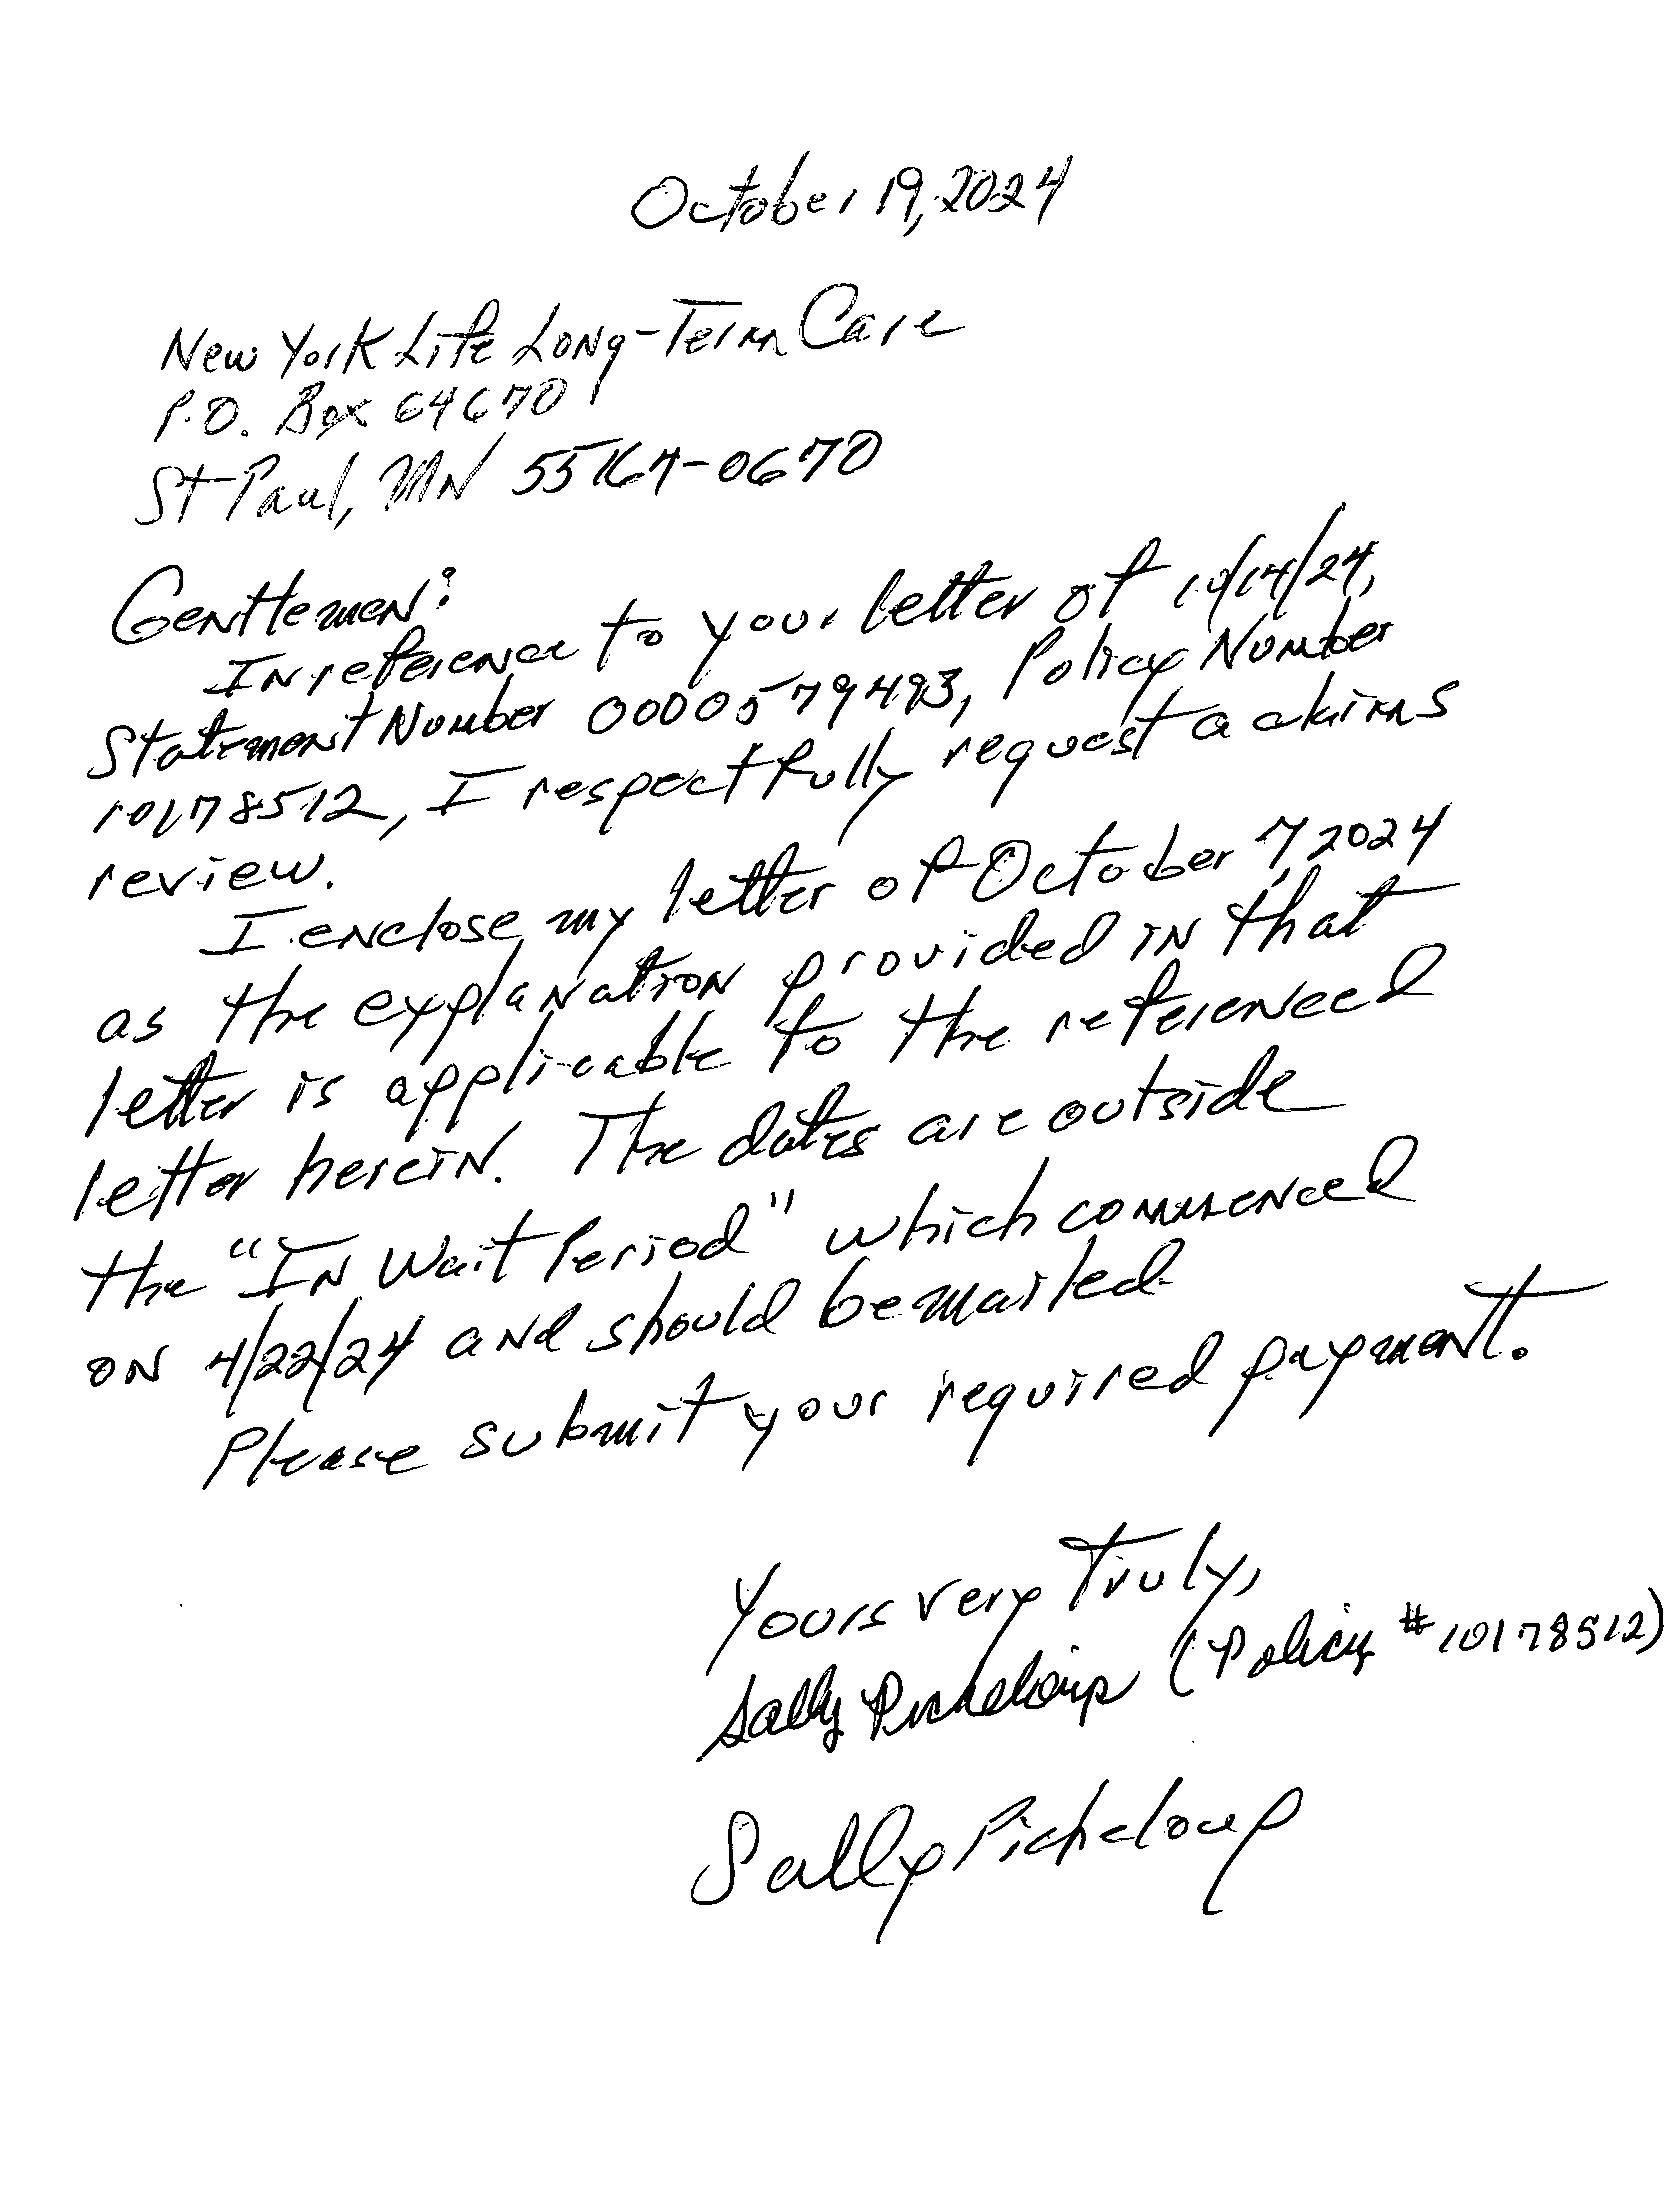 October 19, 2024
New York Life Long-Term Care
P.O. Box 64670
St Paul, MN 55164-0670
Gentlemen:
In reference to your letter of 10/14/24,
Statement Number 0000579493, Policy Number
10178512, I respectfully request a claims
review.
I enclose my letter of October 7, 2024
as the explanation provided in that
letter is applicable to the referenced
letter herein. The dates are outside
the "In Wait Period" which commenced
on 4/22/24 and should be mailed
Please submit your required payment.
Yours very truly,
Sally Picheloup (Policy #10178512)
Sally Picheloup